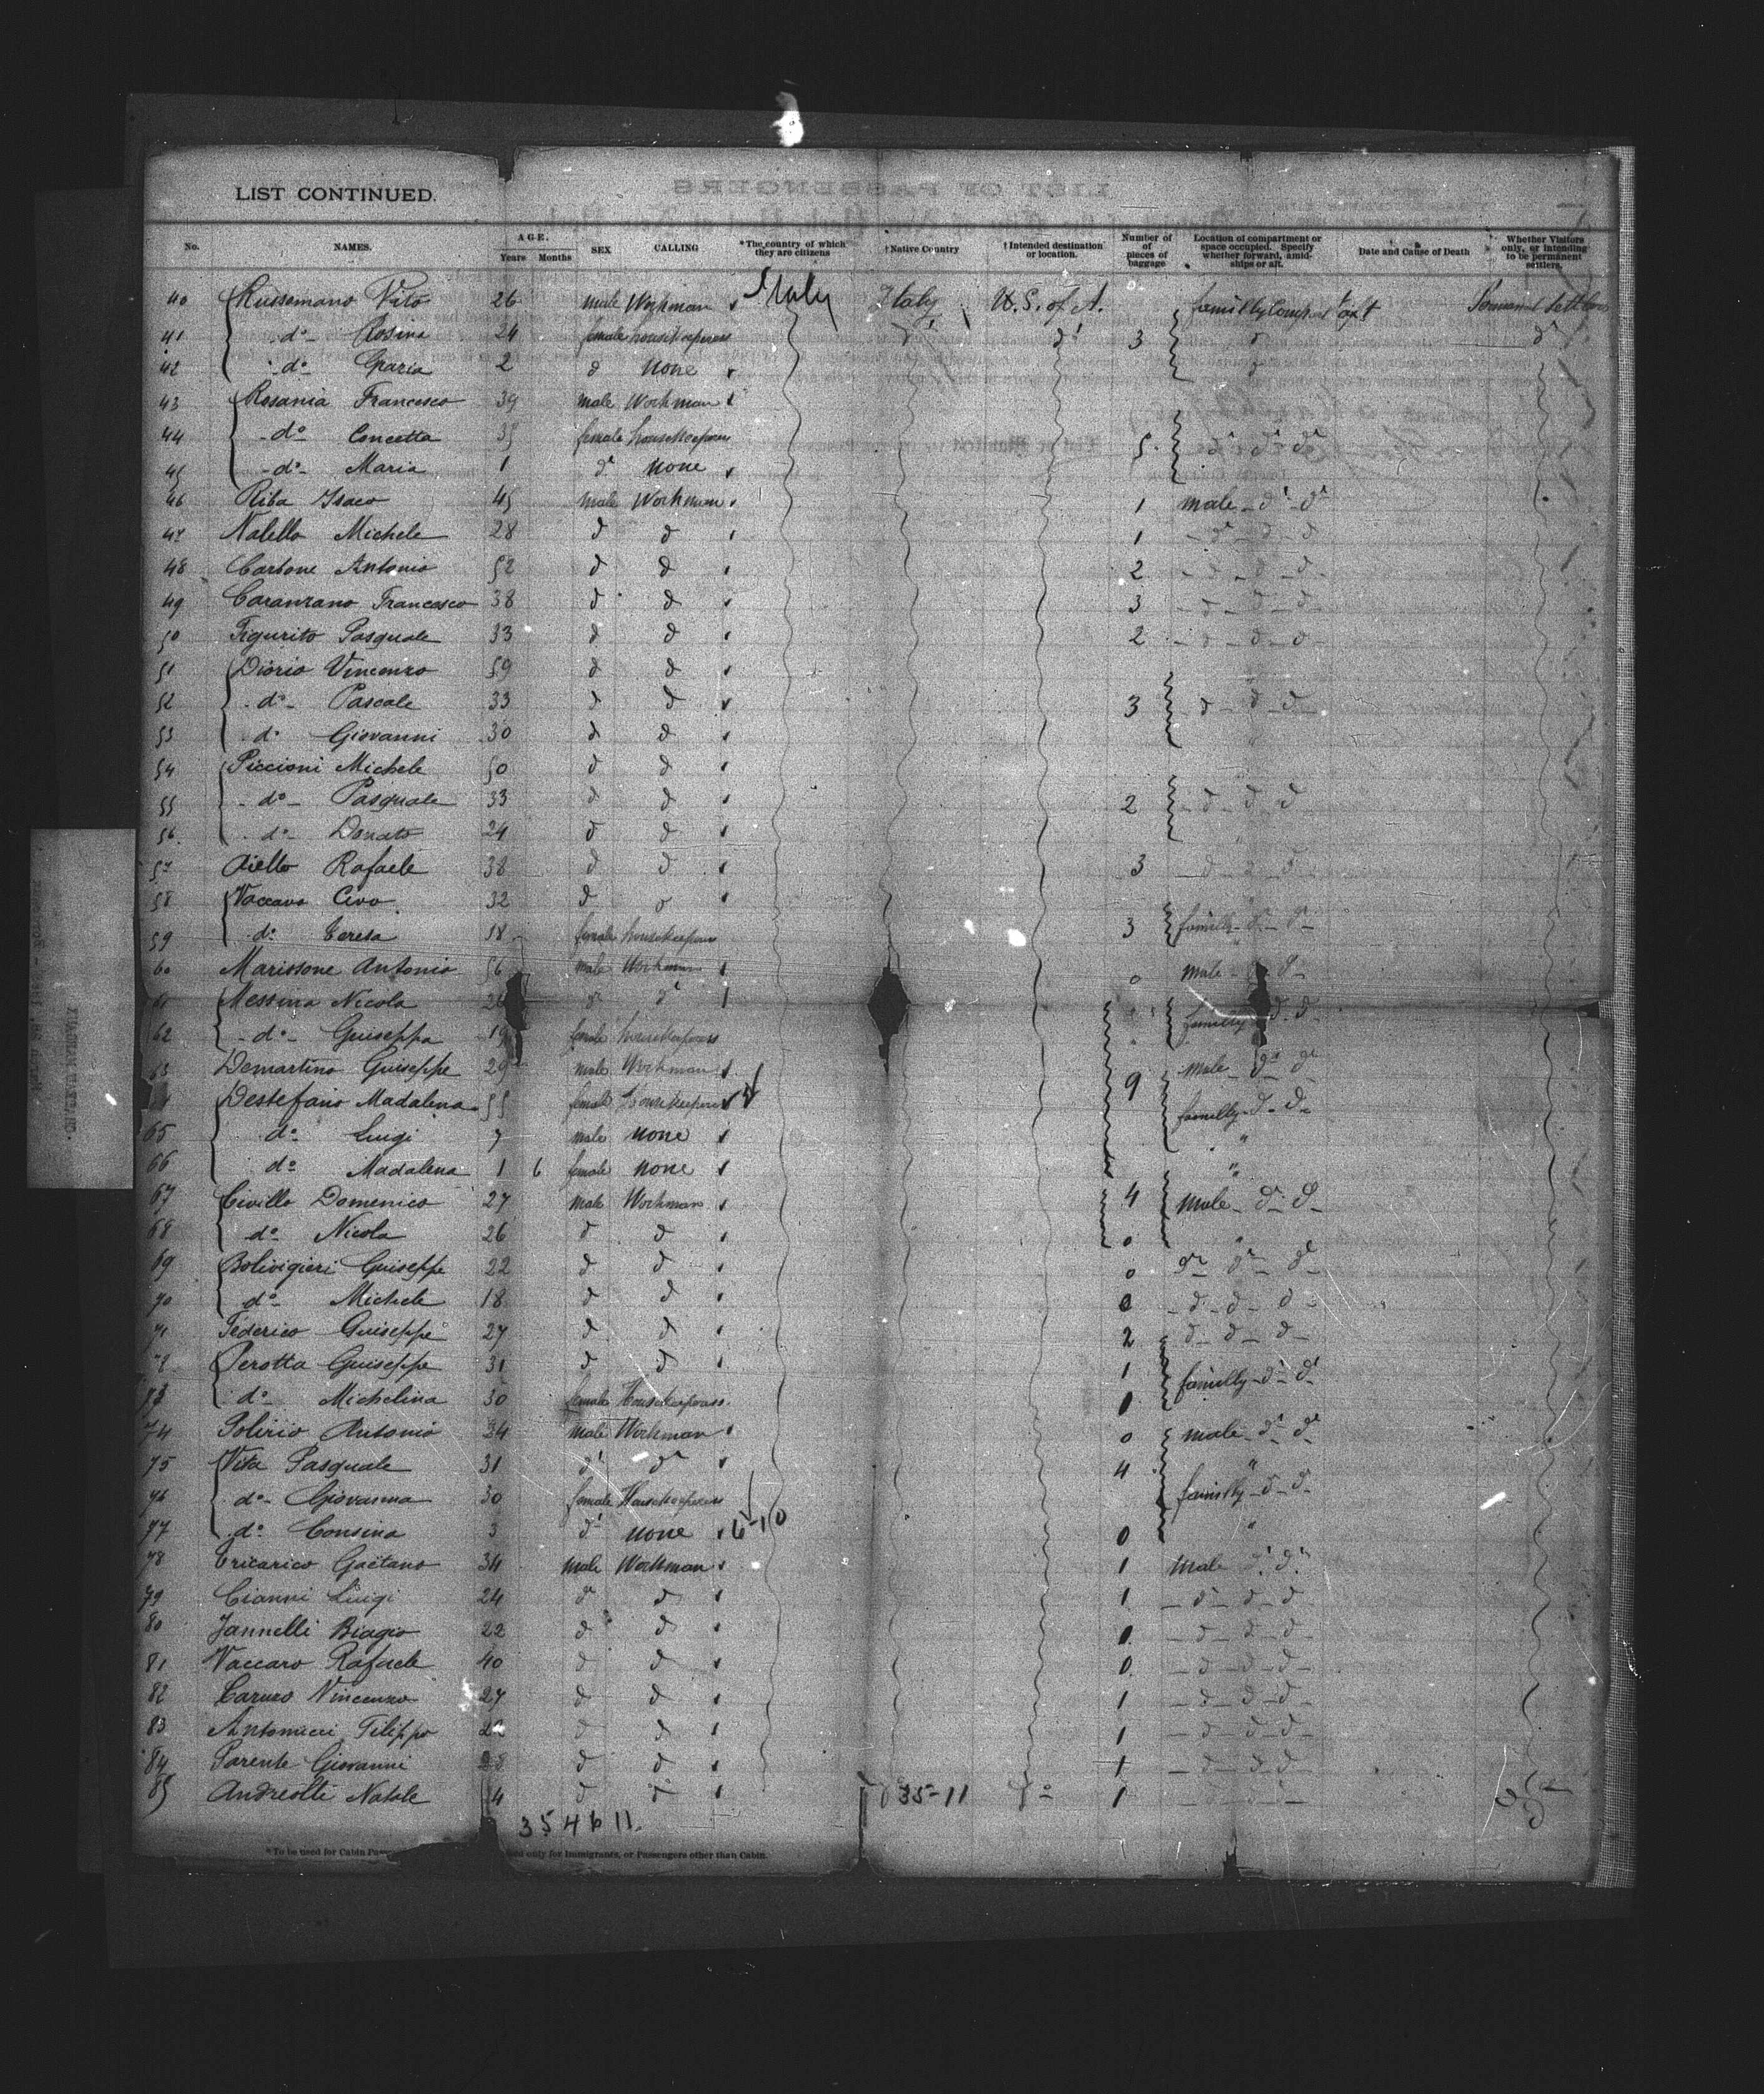 LIST CONTINUED.
No. NAMES. AGE. Years Months SEX CALLING *The country of which they are citizens †Native Country †Intended destination or location. Number of pieces of baggage Location of compartment or space occupied. Specify whether forward, amidships or aft. Date and Cause of Death Whether Visitors only, or intending to be permanent settlers.
40 Russomano Vito 26 male Workman Italy Italy U.S. of A. familly aft
41 do Rosina 24 female housekeeperess do do 3 do
42 do Grazia 2 d none
43 Rosania Francesco 39 male Workman
44 do Concetta female housekeeperess 5
45 do Maria 1 do none
46 Riba Isaco 45 male Workman 1 male do do
47 Nalello Michele 28 d d 1 d d d
48 Carbone Antonio 52 d d 2 d d d
49 Caranzano Francesco 38 d d 3 d d d
50 Figurito Pasquale 33 d d 2 d d d
51 Diorio Vincenzo 59 d d
52 do Pascale 33 d d 3 d d d
53 do Giovanni 30 d d
54 Piccioni Michele 50 d d
55 do Pasquale 33 d d 2 d d d
56 do Donato 24 d d
57 Aiello Rafaele 38 d d 3 d d d
58 Vaccaro 32 d d
59 do Teresa 18 female housekeeperess 3 familly d d
60 Marissone Antonio 56 male Workman 0 male d
61 Messina Nicola 26 d d familly d d
62 do Guiseppa 19 female housekeeperess
63 Demartino Guiseppe 29 male Workman 9 male do do
Destefano Madalena 55 female housekeeperess familly d d
65 do Luigi 7 male none "
66 do Madalena 1 6 female none "
67 Civillo Domenico 27 male Workman 4 male d d
68 do Nicola 26 d d 0 "
69 Bolivigieri Guiseppe 22 d d 0 do do do
70 do Michele 18 d d 0 d d d
71 Federico Guiseppe 27 d d 2 d d d
72 Perotta Guiseppe 31 d d 1 familly d d
73 do Michelina 30 female Housekeeperess
74 Polirio Antonio 34 male Workman 0 male d d
75 Vita Pasquale 31 d d 4 "
76 do Giovanna 30 female Housekeeperess familly d d
77 do Consina 3 d none 6-10 0 "
78 Tricarico Gaetano 34 male Workman 1 male d d
79 Cianni Luigi 24 d d 1 d d d
80 Jannelli Biagio 22 d d 0 d d d
81 Vaccaro Rafaele 40 d d 0 d d d
82 Caruso Vincenzo 27 d d 1 d d d
83 Antonucci Filippo d d 1 d d d
84 Parente Giovanni d d 1 d d d
85 Andreolli Natale d d 35-11 do 1
354611.
*To be used for Cabin only for Immigrants, or Passengers other than Cabin.